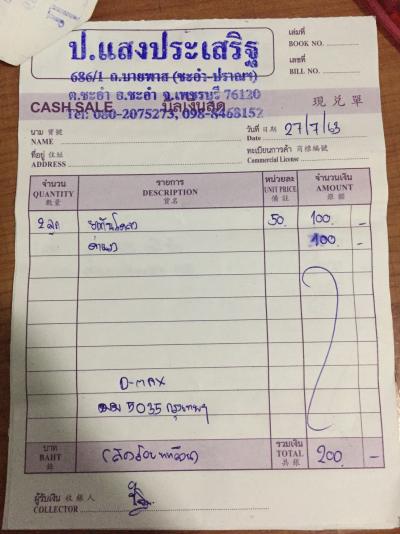 ป.แสงประเสริฐ
686/1 ถ.บายพาส (ชะอำ-ปราณฯ)
ต.ชะอำ อ.ชะอำ จ.เพชรบุรี 76120
Tel: 080-2075273, 098-8468152
เล่มที่
BOOK NO.
เลขที่
BILL NO.
CASH SALE บิลเงินสด 現兌單
นาม 寶號
NAME
วันที่ 日期 27/7/63
Date
ที่อยู่ 住址
ADDRESS
ทะเบียนการค้า 商標編號
Commercial License
จำนวน รายการ หน่วยละ จำนวนเงิน
QUANTITY DESCRIPTION UNIT PRICE AMOUNT
數量 貨名 備註 銀額
2 50. 100. -
100. -
D-MAX
5035 กรุงเทพฯ
บาท รวมเงิน
BAHT (สองร้อยบาทถ้วน) TOTAL 200. -
錢 共銀
ผู้รับเงิน 收銀人
COLLECTOR